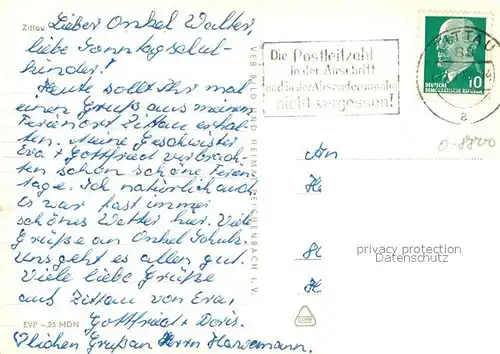 Zittau
Lieber Onkel Walter,
liebe Sonntagschul-
kinder!
Heute sollt ihr mal
einen Gruß aus meinem
Ferienort Zittau erhal-
ten. Meine Geschwister
Eva + Gottfried verbrach-
ten schon schöne Ferien-
tage. Ich natürlich auch
Es war fast immer
schönes Wetter hier. Viele
Grüße an Onkel Schulz.
Uns geht es allen gut.
Viele liebe Grüße
aus Zittau von Eva,
Gottfried + Doris.
♡lichen Gruß an Herrn Hansemann.
EVP -.25 MDN
VEB BILD UND HEIMAT REICHENBACH I. V.
Die Postleitzahl
in der Anschrift
und in der Absenderangabe
nicht vergessen!
ZITTAU
a
10
DEUTSCHE
DEMOKRATISCHE REPUBLIK
0-8800
An
H
privacy protection
Datenschutz
H